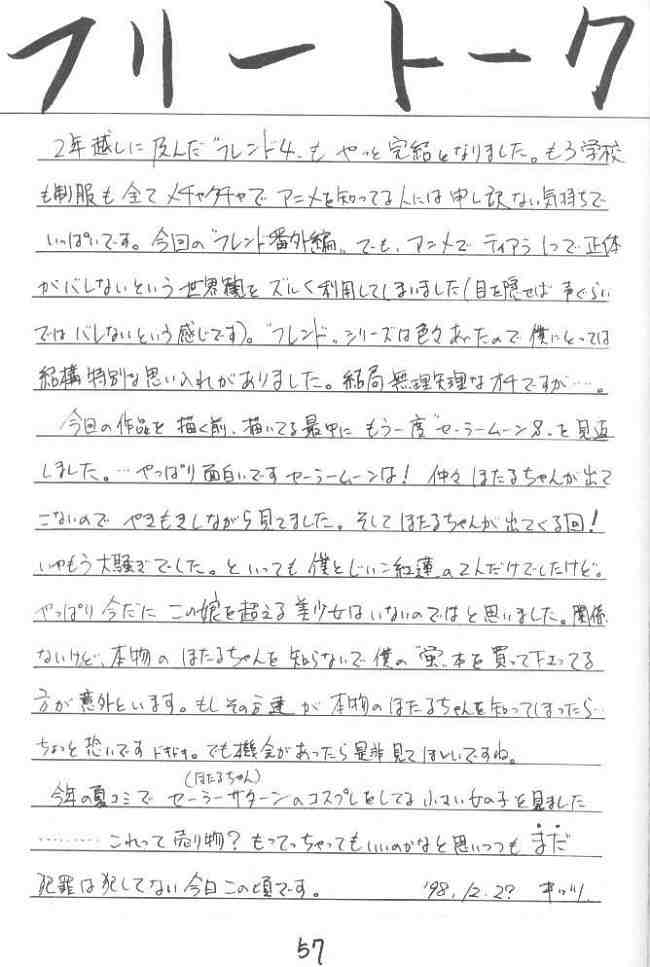 フリートーク
2年越しに及んだ“フレンド4〟もやっと完結となりました。もう学校
も制服も全てメチャクチャでアニメを知ってる人には申し訳ない気持ちで
いっぱいです。今回の“フレンド番外編〟でも、アニメでティアラ1つで正体
がバレないという世界観をズルく利用してしまいました(目を隠せば声ぐらい
ではバレないという感じです)。“フレンド〟シリーズは色々あったので僕にとっては
結構特別な思い入れがありました。結局無理矢理なオチですが…。
今回の作品を描く前、描いてる最中にもう一度“セーラームーンS〟を見返
しました。…やっぱり面白いですセーラームーンは!仲々ほたるちゃんが出て
こないのでやきもきしながら見てました。そしてほたるちゃんが出てくる回!
いやもう大騒ぎでした。といっても僕とじいこ紅蓮の2人だけでしたけど。
やっぱり今だにこの娘を超える美少女はいないのではと思いました。関係
ないけど、本物のほたるちゃんを知らないで僕の“蛍〟本を買って下さってる
方が意外といます。もしその方達が本物のほたるちゃんを知ってしまったら…
ちょっと恐いですドキドキ。でも機会があったら是非見てほしいですね。
(ほたるちゃん)
今年の夏コミでセーラーサターンのコスプレをしてる小さい女の子を見ました
………これって売り物?もってっちゃってもいいのかなと思いつつもまだ
犯罪は犯してない今日この頃です。 '98.12.27
57